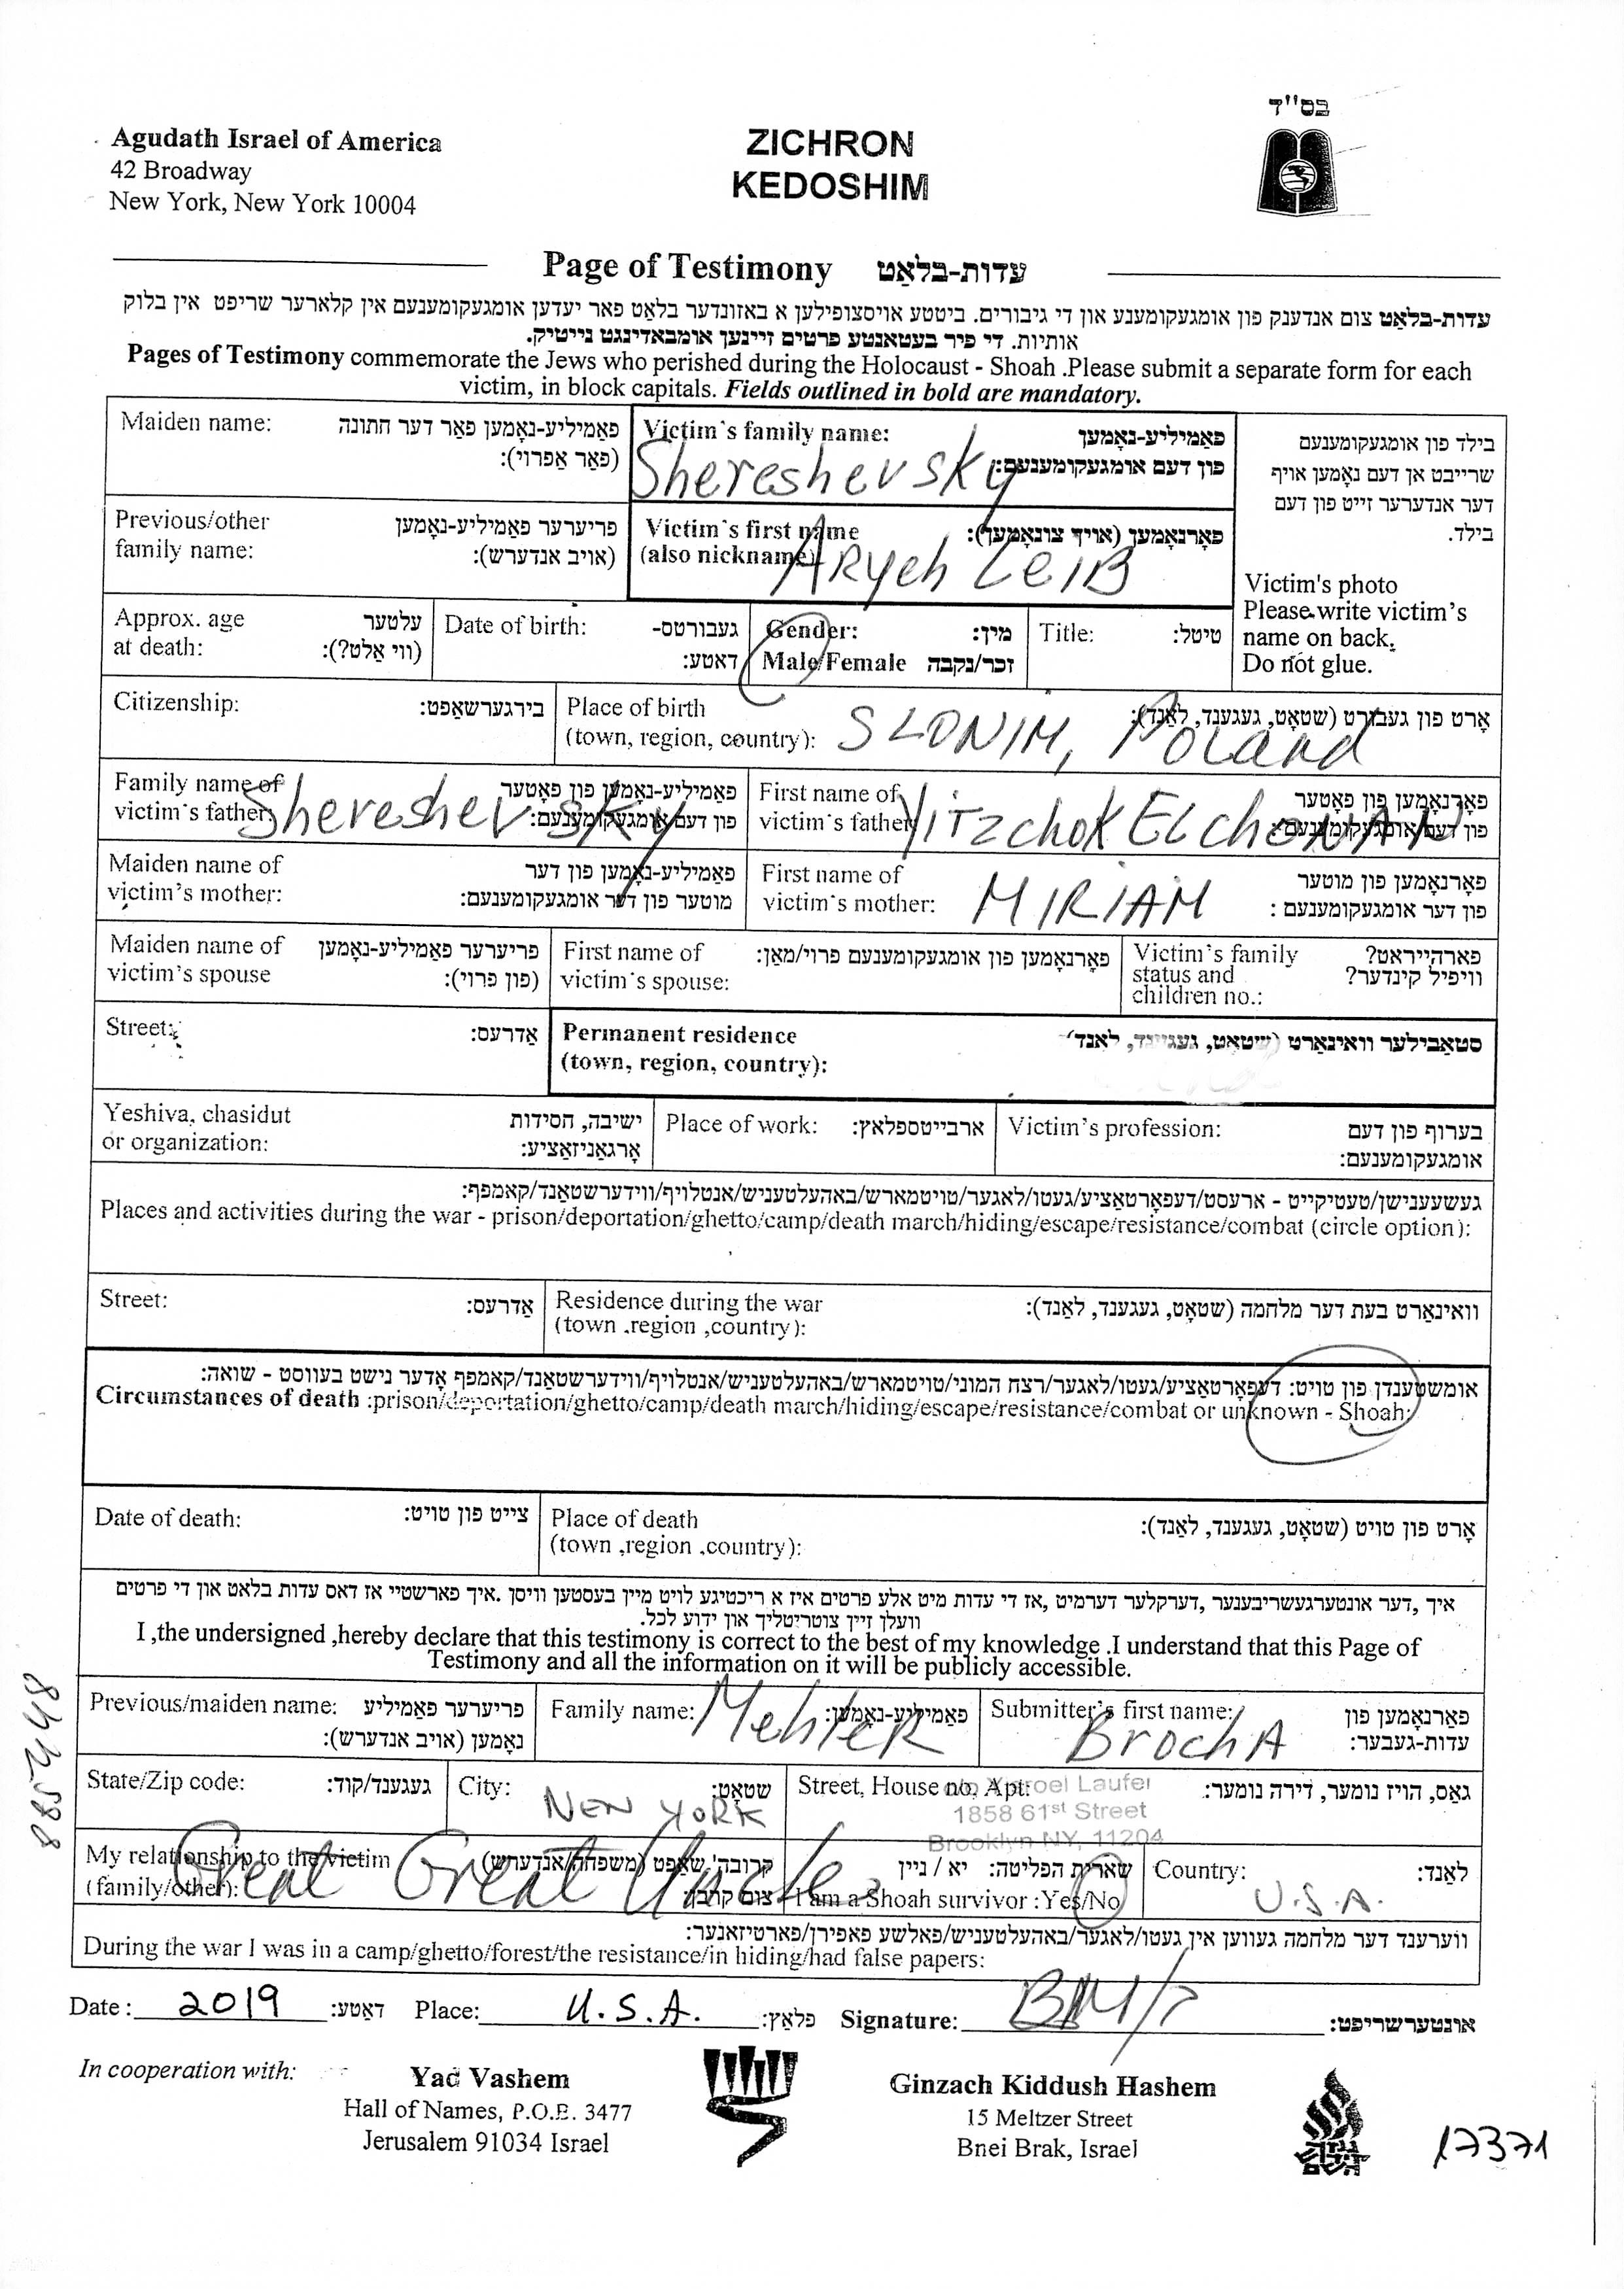 בס"ד
Agudath Israel of America
42 Broadway
New York, New York 10004
ZICHRON
KEDOSHIM
Page of Testimony עדות-בלאַט
עדות-בלאַט צום אנדענק פון אומגעקומענע און די גיבורים. ביטטע אויסצופילען א באזונדער בלאט פאר יעדען אומגעקומענעם אין קלארער שריפט אין בלוק
אותיות. די פיר בעטאנטע פרטים זיינען אומבאדינגט נייטיק.
Pages of Testimony commemorate the Jews who perished during the Holocaust - Shoah .Please submit a separate form for each
victim, in block capitals. Fields outlined in bold are mandatory.
Maiden name: פאַמיליע-נאָמען פאַר דער חתונה
(פאַר אַפרוי):
Victim's family name: פאַמיליע-נאָמען
פון דעם אומגעקומענעם:
Shereshevsky
Previous/other פריערער פאַמיליע-נאָמען
family name: (אויב אנדערש):
Victim's first name פאָרנאָמען (אויך צונאָמען):
(also nickname)
ARyeh LEIB
בילד פון אומגעקומענעם
שרייבט אן דעם נאָמען אויף
דער אנדערער זייט פון דעם
בילד.
Victim's photo
Please write victim's
name on back.
Do not glue.
Approx. age עלטער
at death: (ווי אַלט?):
Date of birth: געבורטס-
דאַטע:
Gender: מין:
Male/Female זכר/נקבה
Title: טיטל:
Citizenship: בירגערשאַפט:
Place of birth אָרט פון געבורט (שטאָט, געגענד, לאַנד):
(town, region, country): SLONIM, Poland
Family name of פאַמיליע-נאָמען פון פאָטער
victim's father: פון דעם אומגעקומענעם:
Shereshevsky
First name of פאָרנאָמען פון פאָטער
victim's father פון דעם אומגעקומענעם:
YITzchoK ELchoNAN
Maiden name of פאַמיליע-נאָמען פון דער
victim's mother: מוטער פון דער אומגעקומענעם:
First name of פאָרנאָמען פון מוטער
victim's mother: MIRIAM פון דער אומגעקומענעם :
Maiden name of פריערער פאַמיליע-נאָמען
victim's spouse (פון פרוי):
First name of פאָרנאָמען פון אומגעקומענעם פרוי/מאַן:
victim's spouse:
Victim's family פארהייראט?
status and וויפיל קינדער?
children no.:
Street: אַדרעס:
Permanent residence סטאַבילער וואינאַרט (שטאָט, געגענד, לאַנד)
(town, region, country):
Yeshiva, chasidut ישיבה, חסידות
or organization: אָרגאַניזאַציע:
Place of work: ארבייטספלאץ:
Victim's profession: בערוף פון דעם
אומגעקומענעם:
געשעענישן/טעטיקייט - ארעסט/דעפאָרטאַציע/געטו/לאגער/טויטמארש/באהעלטעניש/אנטלויף/ווידערשטאַנד/קאמפף:
Places and activities during the war - prison/deportation/ghetto/camp/death march/hiding/escape/resistance/combat (circle option):
Street: אַדרעס:
Residence during the war וואינאַרט בעת דער מלחמה (שטאָט, געגענד, לאַנד):
(town ,region ,country):
אומשטענדן פון טויט: דעפאָרטאַציע/געטו/לאגער/רצח המוני/טויטמארש/באהעלטעניש/אנטלויף/ווידערשטאַנד/קאמפף אָדער נישט בעווסט - שואה:
Circumstances of death :prison/deportation/ghetto/camp/death march/hiding/escape/resistance/combat or unknown - Shoah:
Date of death: צייט פון טויט:
Place of death אָרט פון טויט (שטאָט, געגענד, לאַנד):
(town ,region ,country):
איך ,דער אונטערגעשריבענער ,דערקלער דערמיט ,אז די עדות מיט אלע פרטים איז א ריכטיגע לויט מיין בעסטען וויסן .איך פארשטיי אז דאס עדות בלאט און די פרטים
וועלן זיין צוטריטליך און ידוע לכל.
I ,the undersigned ,hereby declare that this testimony is correct to the best of my knowledge .I understand that this Page of
Testimony and all the information on it will be publicly accessible.
Previous/maiden name: פריערער פאַמיליע
נאָמען (אויב אנדערש):
Family name: פאַמיליע-נאָמען:
MehLER
Submitter's first name: פארנאָמען פון
עדות-געבער:
BrochA
State/Zip code: געגענד/קוד:
City: שטאָט:
NEW YORK
Street, House no, Apt: גאס, הויז נומער, דירה נומער:
Laufer
1858 61st Street
Brooklyn NY, 11204
My relationship to the victim
(family/other):
Great Great Uncle
שארית הפליטה: יא / ניין
I am a Shoah survivor :Yes/No
Country: לאַנד:
U.S.A.
ווערענד דער מלחמה געווען אין געטו/לאגער/באהעלטעניש/פאלשע פאפירן/פארטיזאנער:
During the war I was in a camp/ghetto/forest/the resistance/in hiding/had false papers:
Date: 2019 דאַטע: Place: U.S.A. פלאַץ: Signature: BM אונטערשריפט:
In cooperation with:
Yad Vashem
Hall of Names, P.O.B. 3477
Jerusalem 91034 Israel
Ginzach Kiddush Hashem
15 Meltzer Street
Bnei Brak, Israel
17371